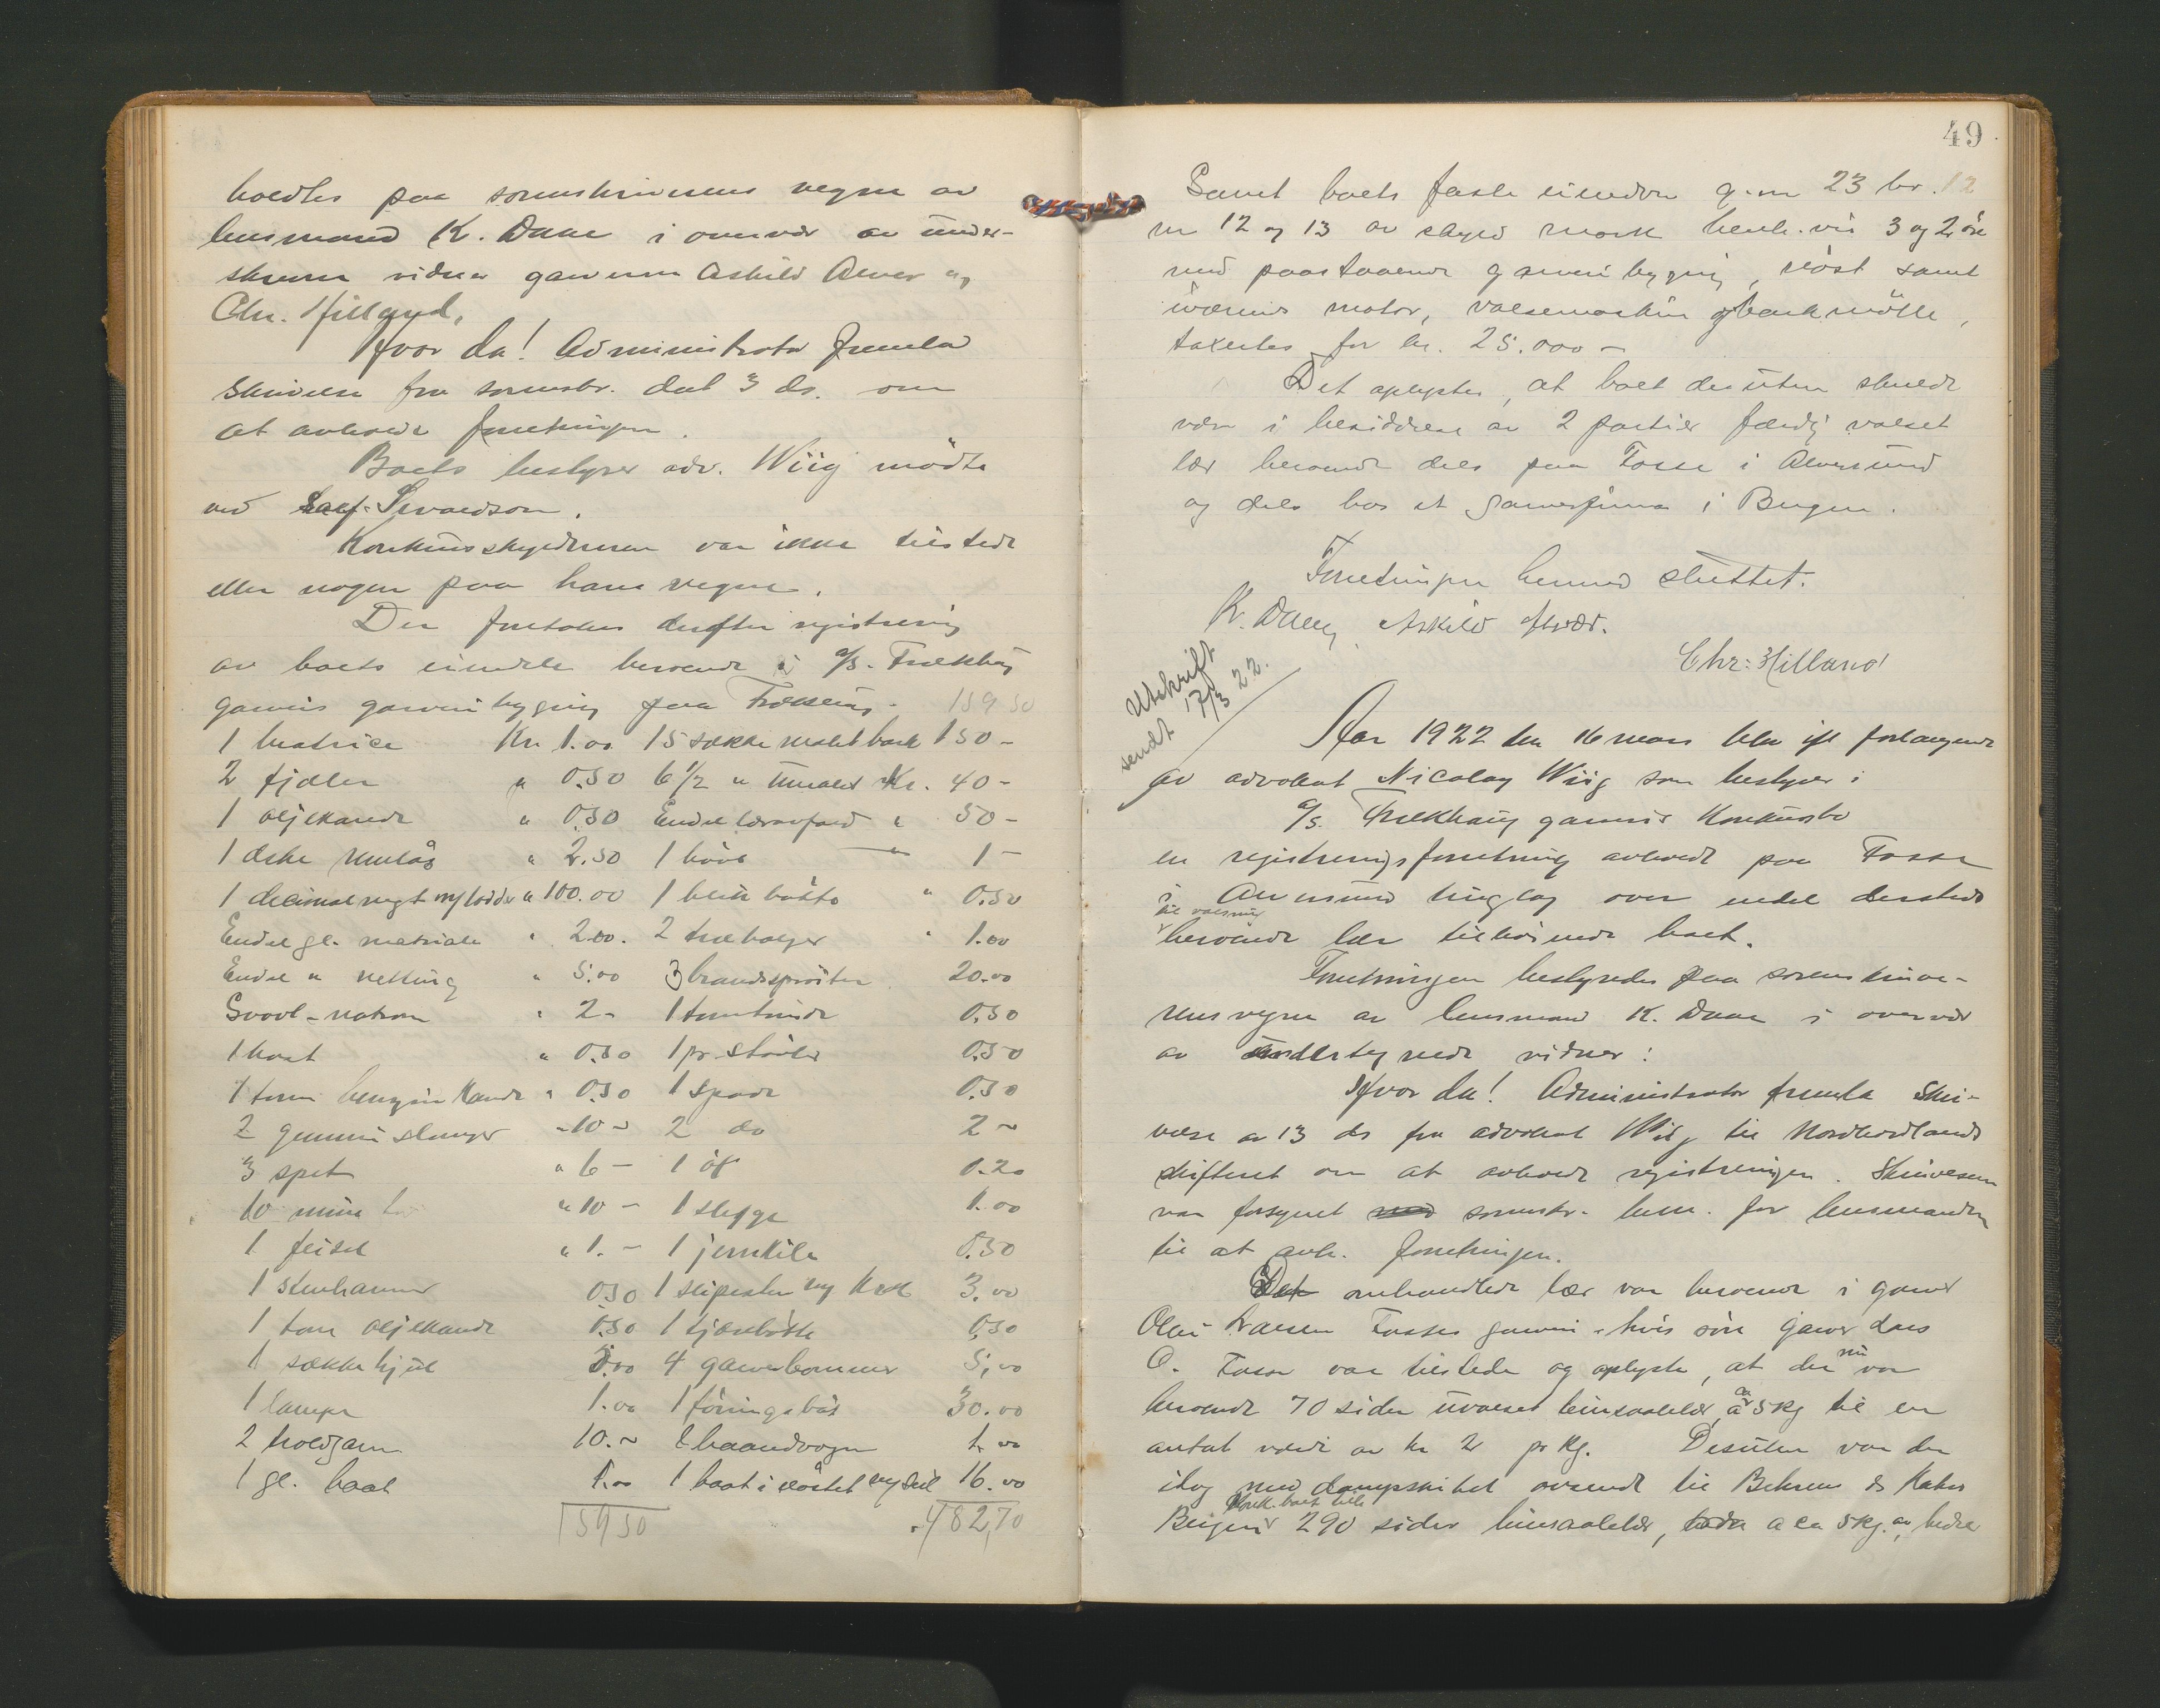 holdtes paa sorenskriverens vegne av
lensmand K. Daae i overvær av under-
skrevne vidner garverne Askild Alver og
Chr. Hilland.
Hvor da! Administrator fremla
skrivelse fra sorenskr. dat 3 ds. om
at avholde forretningen.
Boets bestyrer adv. Wiig mødte
ved Sivaldson.
Konkursskyldneren var ikke tilstede
eller nogen paa hans vegne.
Der foretokes derefter registrering
av boets eiendele beroende i A/S. Frekhaug
garveris garveribygning paa Frekhaug. 159 50
1 matrice Kr. 1.00 15 sække malt bark 150 -
2 fjæler " 0.50 6 1/2 " umalet Kr. 40 -
1 oljekande " 0.50 Endel læravfald " 50 -
1 " 2.50 1 " 1 -
1 decimalvegt m/lodder " 100.00 1 blik bøtte " 0.50
Endel gl. materiale " 2.00. 2 træbaljer " 1.00
Endel " netting " 5.00 3 brandsprøiter 20.00
Svovl-natron " 2 - 1 tomtønde 0.50
1 kost " 0.50 1 pr. støvler 0.50
1 tom bensin kande " 0.50 1 spade 0.50
2 gummi slanger " 10 - 2 do 2 -
3 spet " 6 - 1 øs 0.20
10 " 10 - 1 slegge 1.00
1 feisel " 1. - 1 jernkile 0.50
1 stenhammer 0.50 1 slipesten m/ kasse 3.00
1 tom oljekande 0.50 1 tjærebøtte 0.50
1 sækkehjul 5.00 4 garverbommer 5,00
1 lampe 1.00 1 30.00
2 10. - 1 haandvogn 1.00
1 gl. baat 1.00 1 baat i nøstet m/seil 16.00
159 50 482,70
49
Samt boets faste eiendom g.nr 23 br. 12
nr 12 og 13 av skyld mark henh.vis 3 og 2 øre
med paastaaende garveribygning, nøst samt
iværende motor, valsemaskin og barkmølle,
taxertes for kr. 25.000 -
Det oplystes, at boet desuten skulde
være i besiddelse av 2 partier færdig valset
lær beroende dels paa Fosse i Alversund
og dels hos et garverfirma i Bergen.
Forretningen hermed sluttet.
K. Daae, Askild Alver.
Chr: Hilland
Utskrift
sendt 17/3 22.
Aar 1922 den 16 mars blev ifl forlangende
av advokat Nicolay Wiig som bestyrer i
A/S. Frekhaug garveris Konkursbo
en registreringsforretning avholdt paa Fosse
i Alversund tinglag over endel dersteds
til valsning
beroende lær tilhørende boet.
Forretningen bestyredes paa sorenskrive-
rens vegne av lensmand K. Daae i overvær
av undertegnede vidner:
Hvor da! Administrator fremla skri-
velse av 13 ds fra advokat Wiig til Nordhordlands
skifteret om at avholde registreringen. Skrivelsen
var forsynet med sorenskr. bem. for lensmanden
til at avh. forretningen.
Det omhandlede lær var beroende i garver
Olai Larsen Fosses garveri - hvis søn garver Lars
O. Fosse var tilstede og oplyste, at der nu var
beroende 70 sider uvalset binsaalelær, a ca 5 kg til en
antat værdi av kr 2 pr kg. Desuten var der
idag med dampskibet avsendt til Behrens & Kahrs
konk. boet tilh.
Bergen 290 sider binsaalelær, a ca 5 kg. av bedre